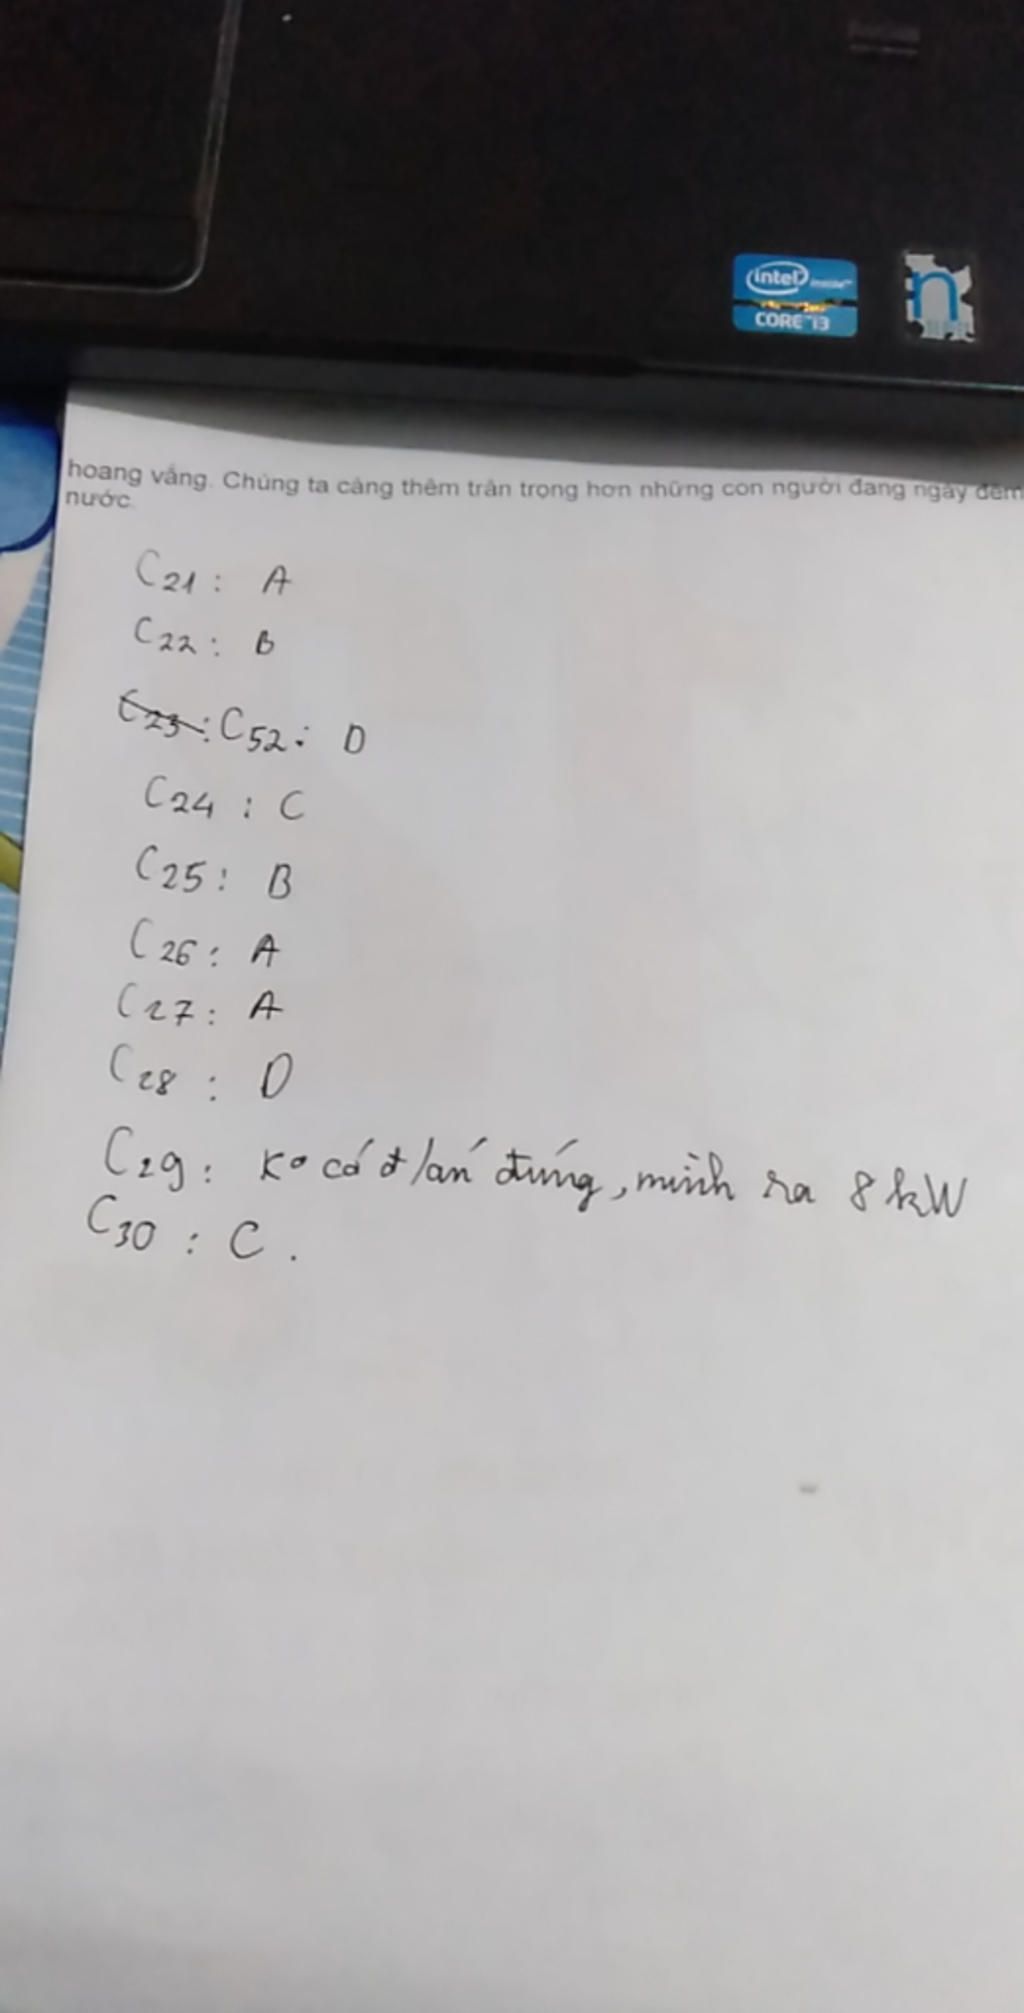 intel inside™
CORE™ i3
n
hoang vắng. Chúng ta càng thêm trân trọng hơn những con người đang ngày đêm
nước.
C21: A
C22: B
C23: C52: D
C24: C
C25: B
C26: A
C27: A
C28: D
C29: Ko có đ/án đúng, mình ra 8kW
C30: C.